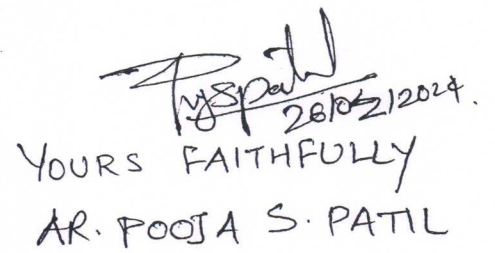 Pyspatil
28/02/2024.
YOURS FAITHFULLY
AR. POOJA S. PATIL